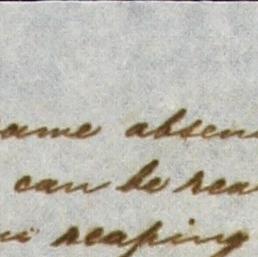 same absen
can be rea
in reaping